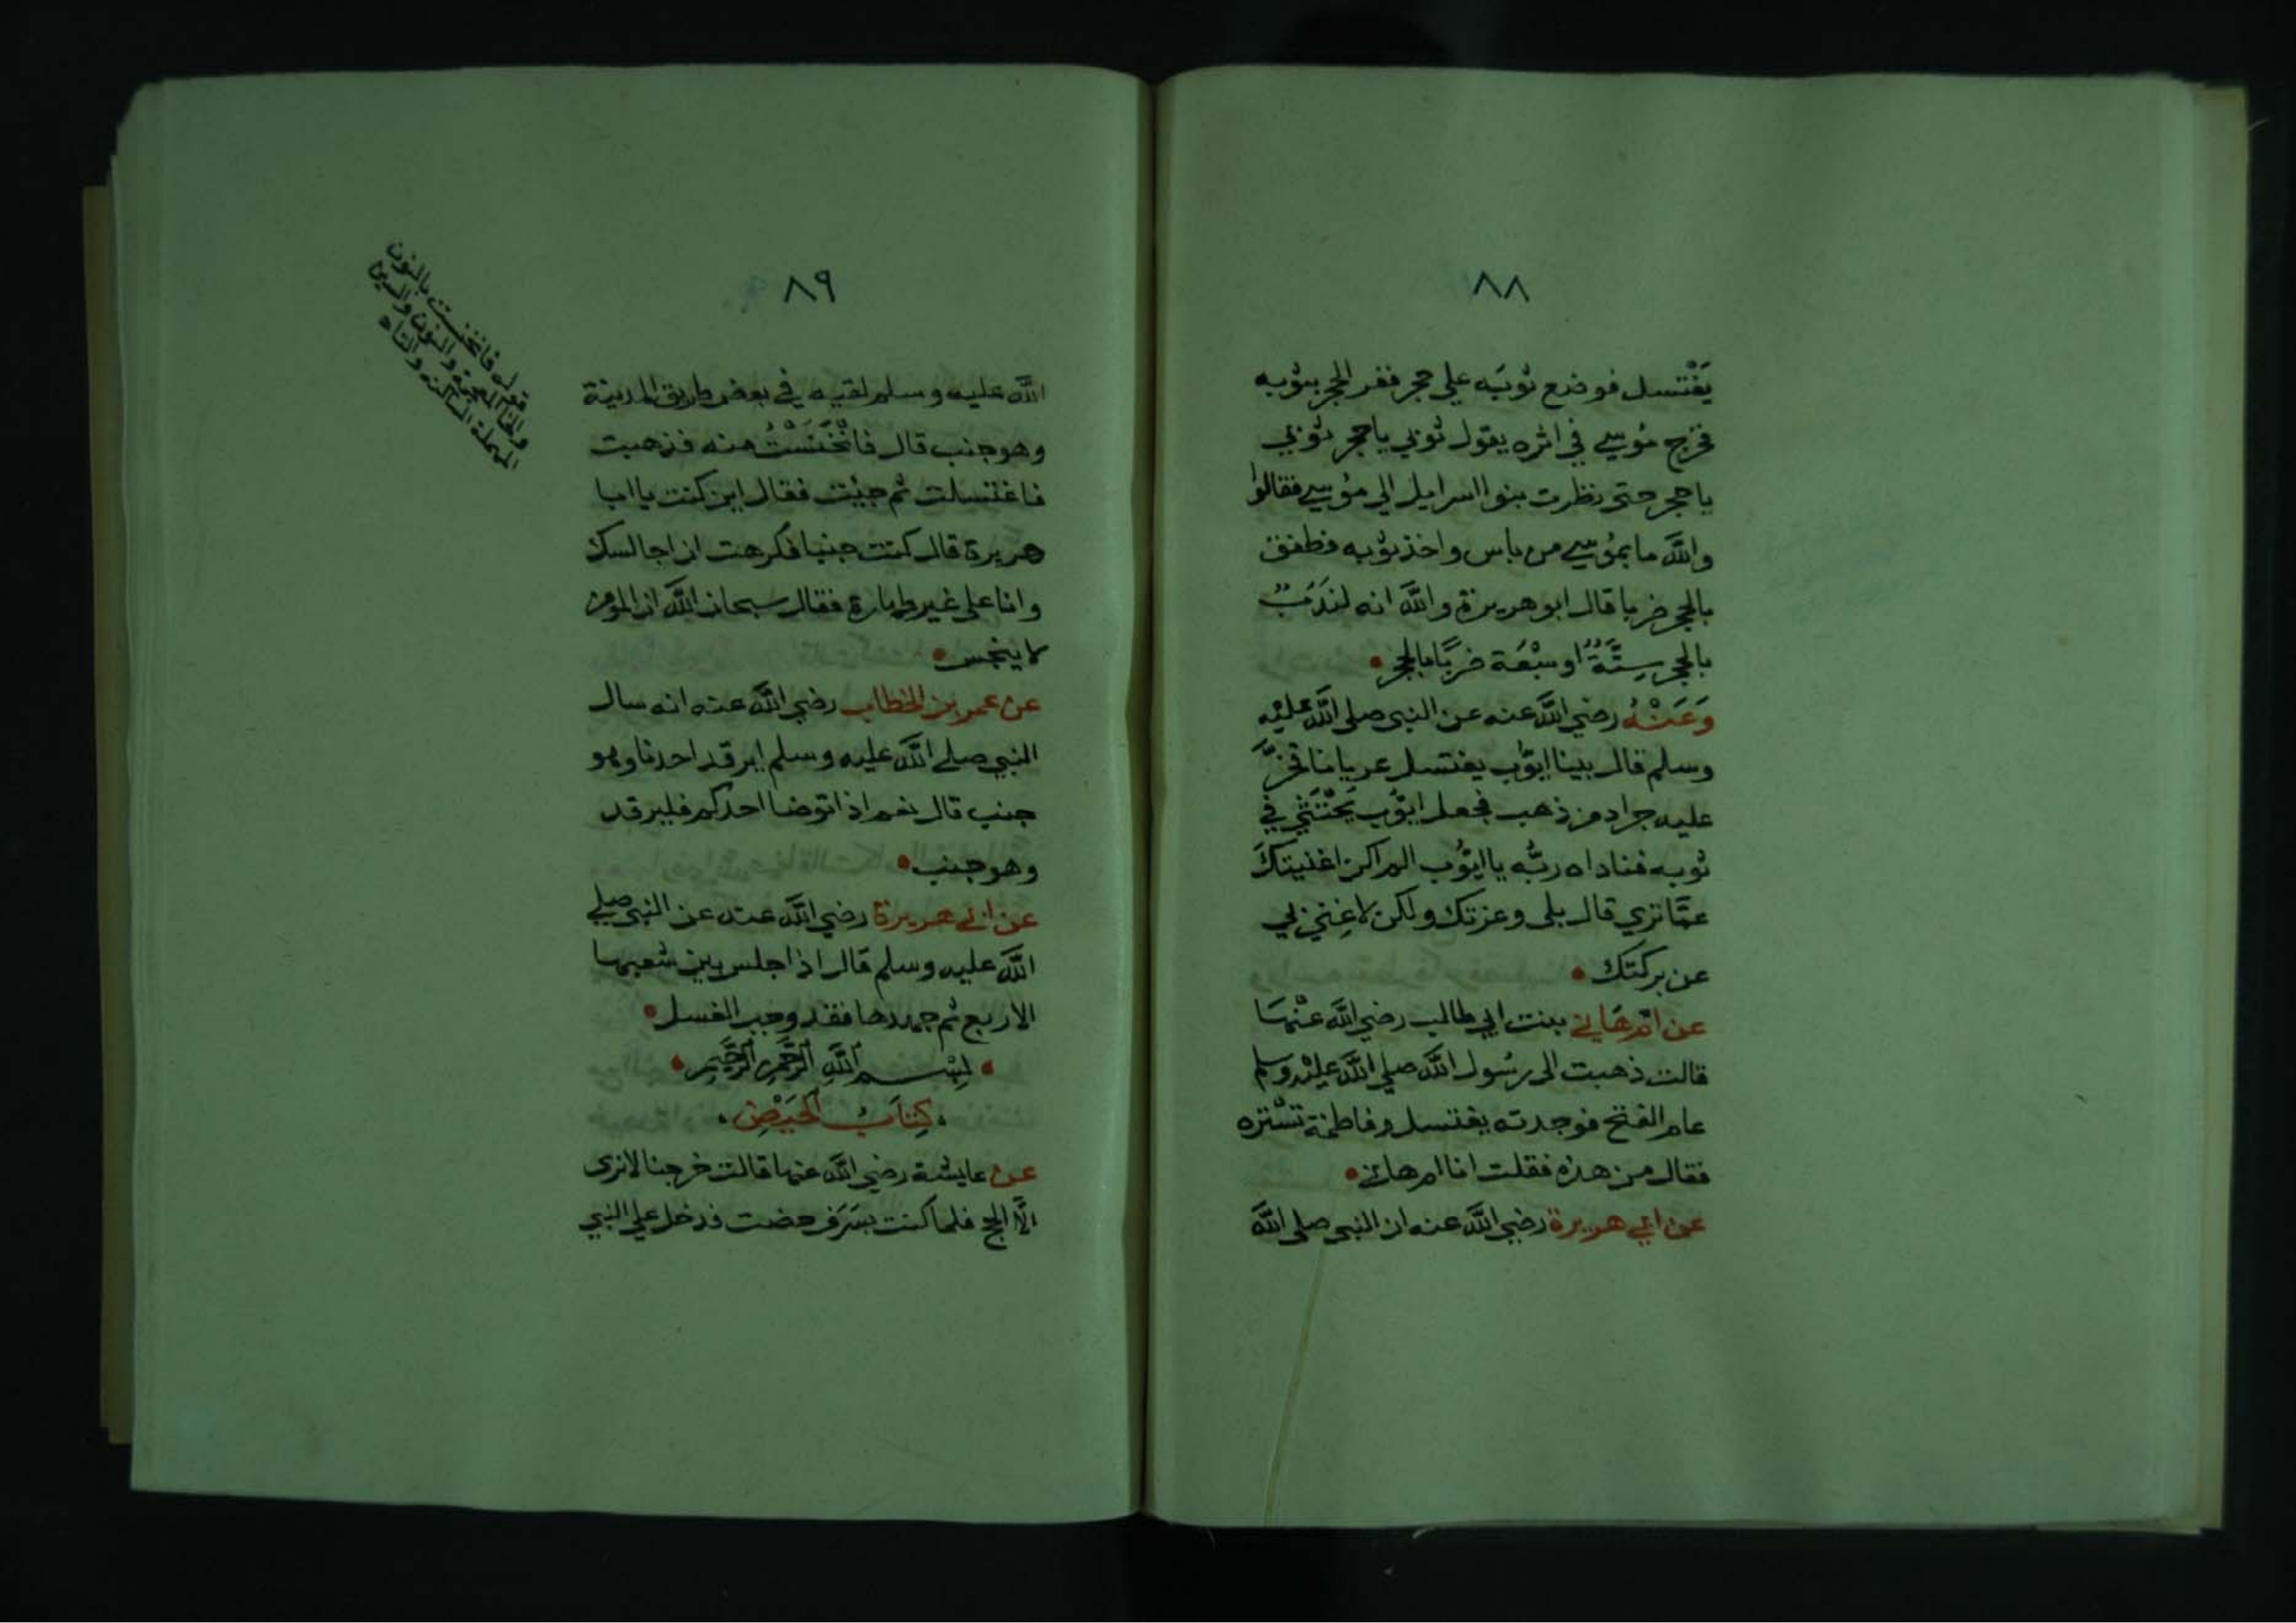 ٨٨
يَغْتسل فوضع ثوبَه علي حجر ففر الحجر بثوبه
فخرج مُوسي في اثره يقول ثوبي ياحجر ثوبي
ياحجر حتى نظرت بنوا اسرايل الي موُسي فقالوا
واللَّه مابموُسي من باس واخذ ثوبه فطفق
بالحجر ضربا قال ابو هريرة واللَّه انه لنَدَبٌ
بالحجر سِتَّةٌ او سبْعَة ضربًا بالحجر
وَعَنْهُ رضي اللَّه عنه عن النبي صلي اللَّه عليْه
وسلم قال بينا ايوُّب يغتسل عريانا فخرَّ
عليه جراد من ذهب فجعل ايوُّب يَحْتَثِي في
ثوبه فناداه ربُّه يا ايوُّب الم اكن اغنيتكَ
عمَّا تري قال بلى وعزتك ولكن لاغِني بي
عن بركتك
عن امّ هَاني بنت ابي طالب رضي اللَّه عنْهَا
قالت ذهبت الى رسُول اللَّه صلي اللَّه عليْه وسلم
عام الفتح فوجدته يغتسل وفاطمَة تسْتره
فقال من هذه فقلت انا ام هاني
عن ابي هريرة رضي اللَّه عنه ان النبي صلى اللَّه
٨٩
اللَّه عليه وسلم لقيه في بعض طريق المدينة
وهو جنب قال فانْخَنَسْتُ منه فذهبت
فاغتسلت ثم جيئت فقال اين كنت يا ابا
هريرة قال كنت جنبا فكرهت ان اجالسك
وانا على غير طهارة فقال سبحان اللَّه ان المومن
لا ينجس
عن عمر بن الخطاب رضي اللَّه عنه انه سال
النبي صلي اللَّه عليه وسلم ايرقد احدنا وهو
جنب قال نعم اذا توضا احدكم فليرقد
وهو جنب
عن ابي هريرة رضي اللَّه عنه عن النبي صلي
اللَّه عليه وسلم قال اذا جلس بين شعبها
الاربع ثم جهدها فقد وجب الغسل
بِسْم اللَّهِ الرَّحْمنِ الرَّحِيمِ
كِتَابُ الحَيْضِ
عن عايشة رضي اللَّه عنها قالت خرجنا لانرى
الَّا الحج فلما كنت بسَرَف حضت فدخل علي النبي
قوله فانخنست بالنون
والخا المعجمة والنون والسين
المهملة الساكنه والتاء